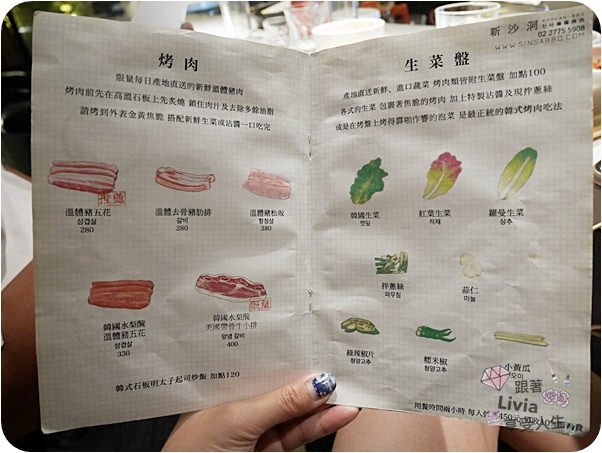 烤肉
限量每日產地直送的新鮮溫體豬肉
烤肉前先在高溫石板上先炙燒 鎖住肉汁及去除多餘油脂
請烤到外表金黃焦脆 搭配新鮮生菜或沾醬一口吃完
溫體豬五花
삼겹살
280
溫體去骨豬肋排
갈비
280
溫體豬松坂
항정살
380
韓國水梨醃
溫體豬五花
삼겹살
330
韓國水梨醃
美國帶骨牛小排
양념 갈비
400
韓式石板明太子起司炒飯 加點120
新沙洞
KOREAN BBQ
02 2775 5908
WWW.SINSABBQ.COM
生菜盤
產地直送新鮮、進口蔬菜 烤肉類皆附生菜盤 加點100
各式的生菜 包裹著焦脆的烤肉 加上特製沾醬及現拌蔥絲
或是在烤盤上烤得滋啪作響的泡菜 是最正統的韓式烤肉吃法
韓國生菜
깻잎
紅葉生菜
적재
羅曼生菜
상추
拌蔥絲
파무침
蒜仁
마늘
綠辣椒片
청양고추
糯米椒
청양고추
小黃瓜
오이
用餐時間兩小時
跟著
Livia
享受人生